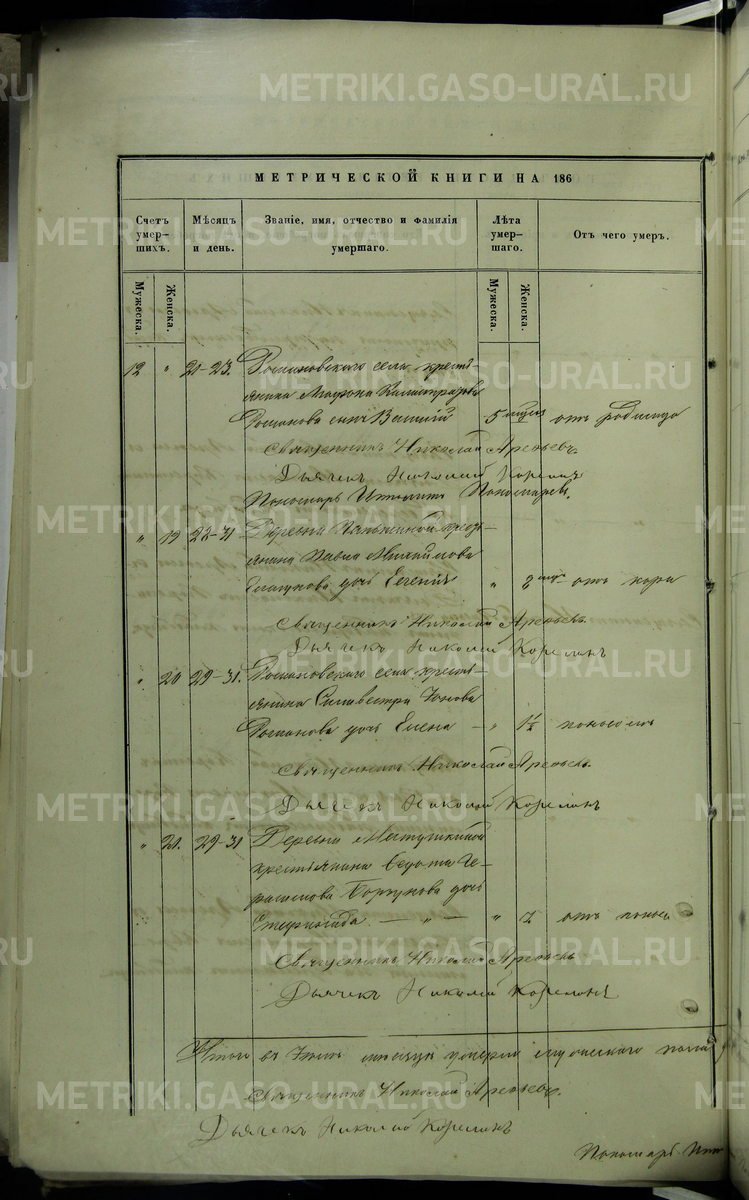 METRIKI.GASO-URAL.RU
МЕТРИЧЕСКОЙ КНИГИ НА 186
Счетъ умер-шихъ.
Мѣсяцъ и день.
Званіе, имя, отчество и фамилія умершаго.
Лѣта умер-шаго.
Отъ чего умеръ.
Мужеска.
Женска.
Мужеска.
Женска.
12 " 21-23. Романовскаго села кресть-
янина
Романова сынъ Василій 5 отъ родимца
Священникъ Николай Арефьевъ.
Дьячекъ Николай Корелинъ
Пономарь Ипполитъ Пономаревъ.
" 19 28-31 Деревни кресть-
янина Павла Михайлова
дочь Евгенія " отъ кори
Священникъ Николай Арефьевъ.
Дьячекъ Николай Корелинъ
" 20 29-31. Романовскаго села кресть-
янина Силвестра
Романова дочь Елена — " 1½ поносомъ
Священникъ Николай Арефьевъ.
Дьячекъ Николай Корелинъ
" 21. 29-31 Деревни
крестьянина Ѳедота Ге-
расимова дочь
— " — " отъ поноса
Священникъ Николай Арефьевъ
Дьячекъ Николай Корелинъ
Итого въ мѣсяцѣ умерло мужескаго пола
Священникъ Николай Арефьевъ.
Дьячекъ Николай Корелинъ
Пономарь